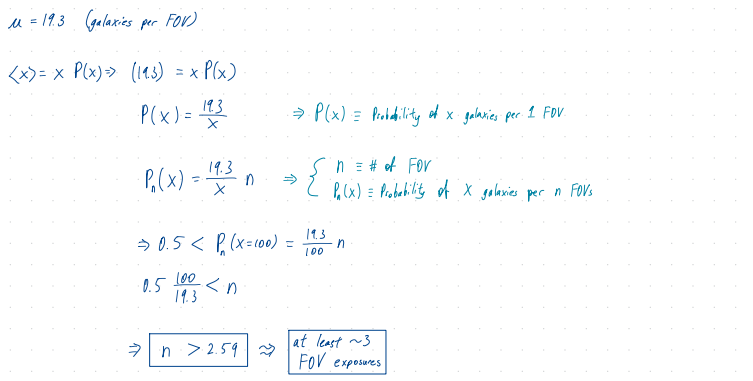 μ = 19.3 (galaxies per FOV)
<x> = x P(x) ⇒ (19.3) = x P(x)
P(x) = 19.3/x ⇒ P(x) ≡ Probability of x galaxies per 1 FOV
Pₙ(x) = 19.3/x n ⇒ { n ≡ # of FOV
Pₙ(x) ≡ Probability of x galaxies per n FOVs
⇒ 0.5 < Pₙ(x=100) = 19.3/100 n
0.5 100/19.3 < n
⇒ n > 2.59 ⇒ at least ~3
FOV exposures